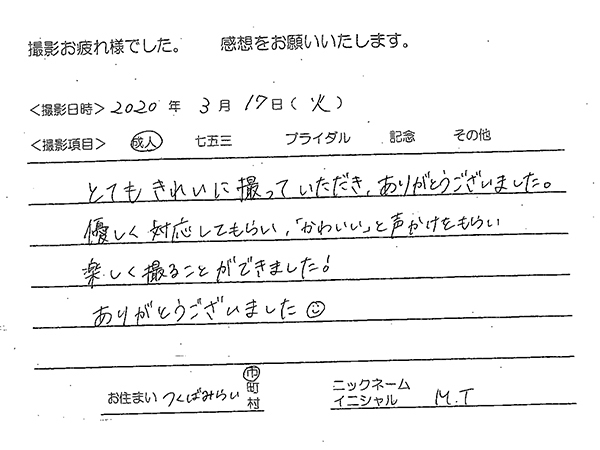 撮影お疲れ様でした。 感想をお願いいたします。
＜撮影日時＞ 2020 年 3 月 17 日（ 火 ）
＜撮影項目＞ 成人 七五三 ブライダル 記念 その他
とても きれいに 撮って いただき、ありがとうございました。
優しく 対応してもらい、「かわいい」と声かけをもらい
楽しく 撮ることが できました！
ありがとうございました☺
お住まい つくばみらい 市 町 村
ニックネーム
イニシャル M.T